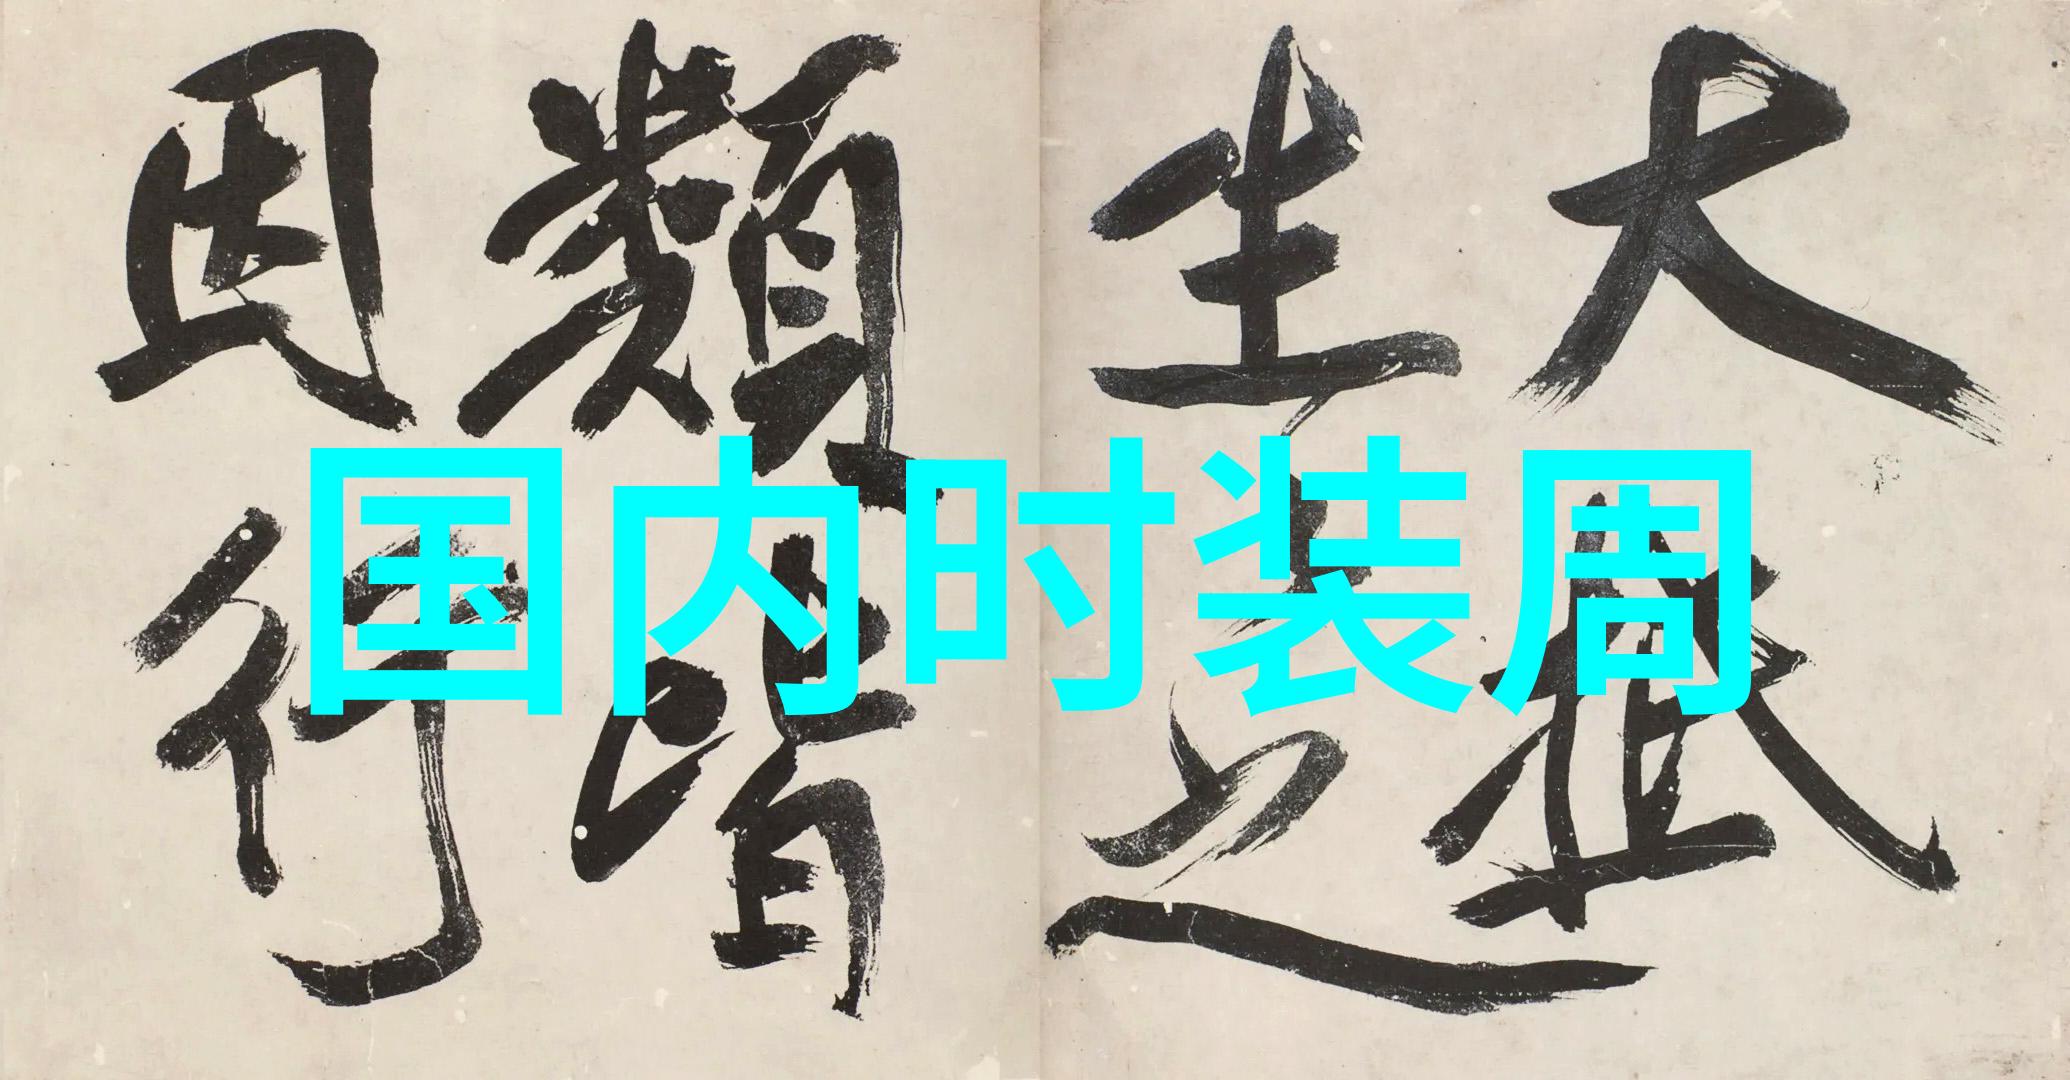 大
生之
類皆
因行
国内时装周